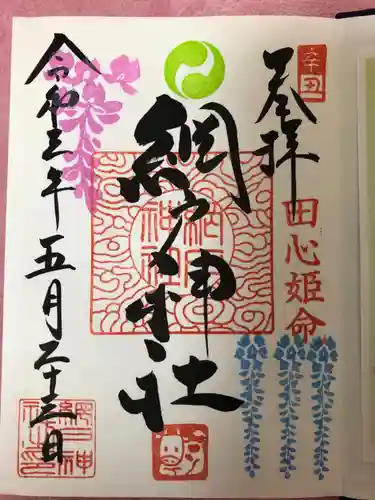 辛丑
奉拝
田心姫命
網戸神社
網戸神社
令和三年五月二十三日